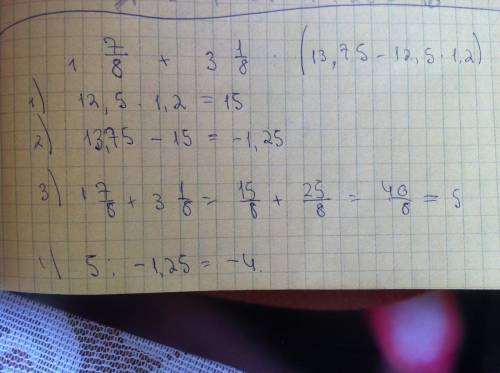 1 7/8 + 3 1/8 · (13,75 - 12,5 · 1,2)
1) 12,5 · 1,2 = 15
2) 13,75 - 15 = -1,25
3) 1 7/8 + 3 1/8 = 15/8 + 25/8 = 40/8 = 5
4) 5 : -1,25 = -4.